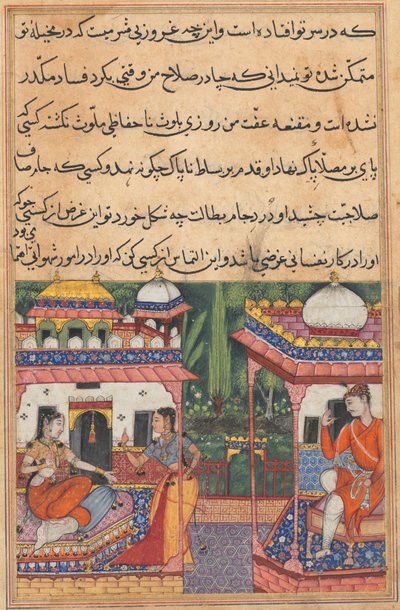 که در سر تو افتاده است و این چه غروریی شر میست که در مخیلهٔ تو
متمکن شده تو نمیدانی که چادر صلاح من وقتی بگرد فساد مکدر
نشده است و مقنعه عفت من روزی بلوث ناحفاظی ملوث نکشته کسی که
پای بر مصلا پاک نهاد او قدم بر بساط ناپاک چگونه نهد و کسی که جام صاف
صلاحیت چشید او درد جام بطالت چه شکل خورد تو این غرض از کسی جوی که
او را در کار نفسانی غرضی باشد و این التماس از کسی کن که او را در امور شهوانی